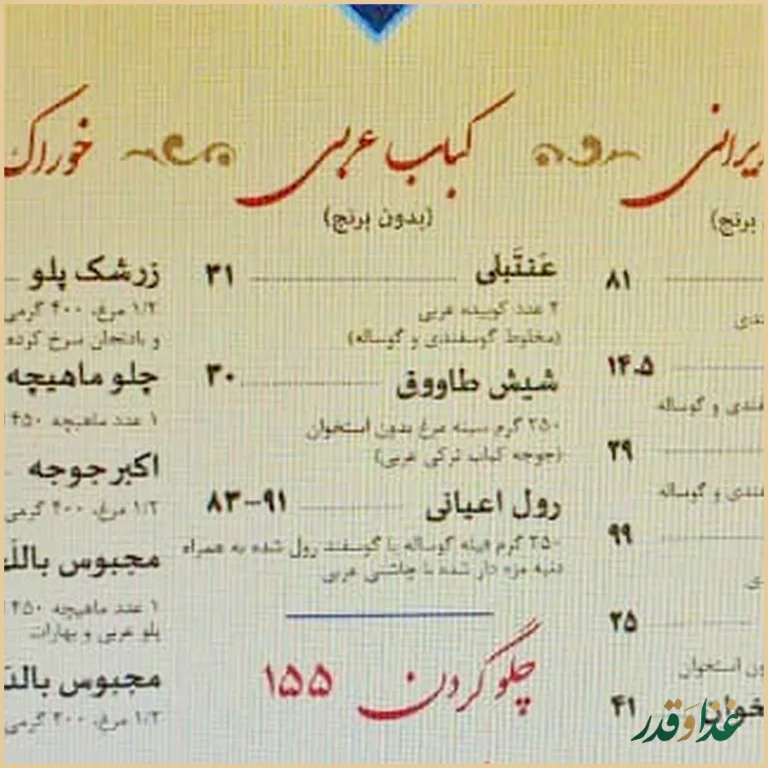 کباب عربی
(بدون برنج)
عَنتَبلی ۳۱
۲ عدد کوبیده عربی
(مخلوط گوسفندی و گوساله)
شیش طاووق ۳۰
۲۵۰ گرم سینه مرغ بدون استخوان
(جوجه کباب ترکی عربی)
رول اعیانی ۸۳-۹۱
۲۵۰ گرم فیله گوساله یا گوسفند رول شده به همراه
دنبه مزه دار شده با چاشنی عربی
چلو گردن ۱۵۵
برنج)
۸۱
۱۴.۵
و گوساله
۲۹
و گوساله
۹۹
۲۵
استخوان
۴۱
خوراک
زرشک پلو
۱/۲ مرغ، ۴۰۰ گرمی
و بادنجان سرخ کرده
چلو ماهیچه
۱ عدد ماهیچه ۴۵۰
اکبر جوجه
۱/۲ مرغ، ۴۰۰ گرمی
مجبوس
۱ عدد ماهیچه ۴۵۰
پلو عربی و بهارات
مجبوس
۱/۲ مرغ، ۴۰۰ گرمی
غذا و قدر